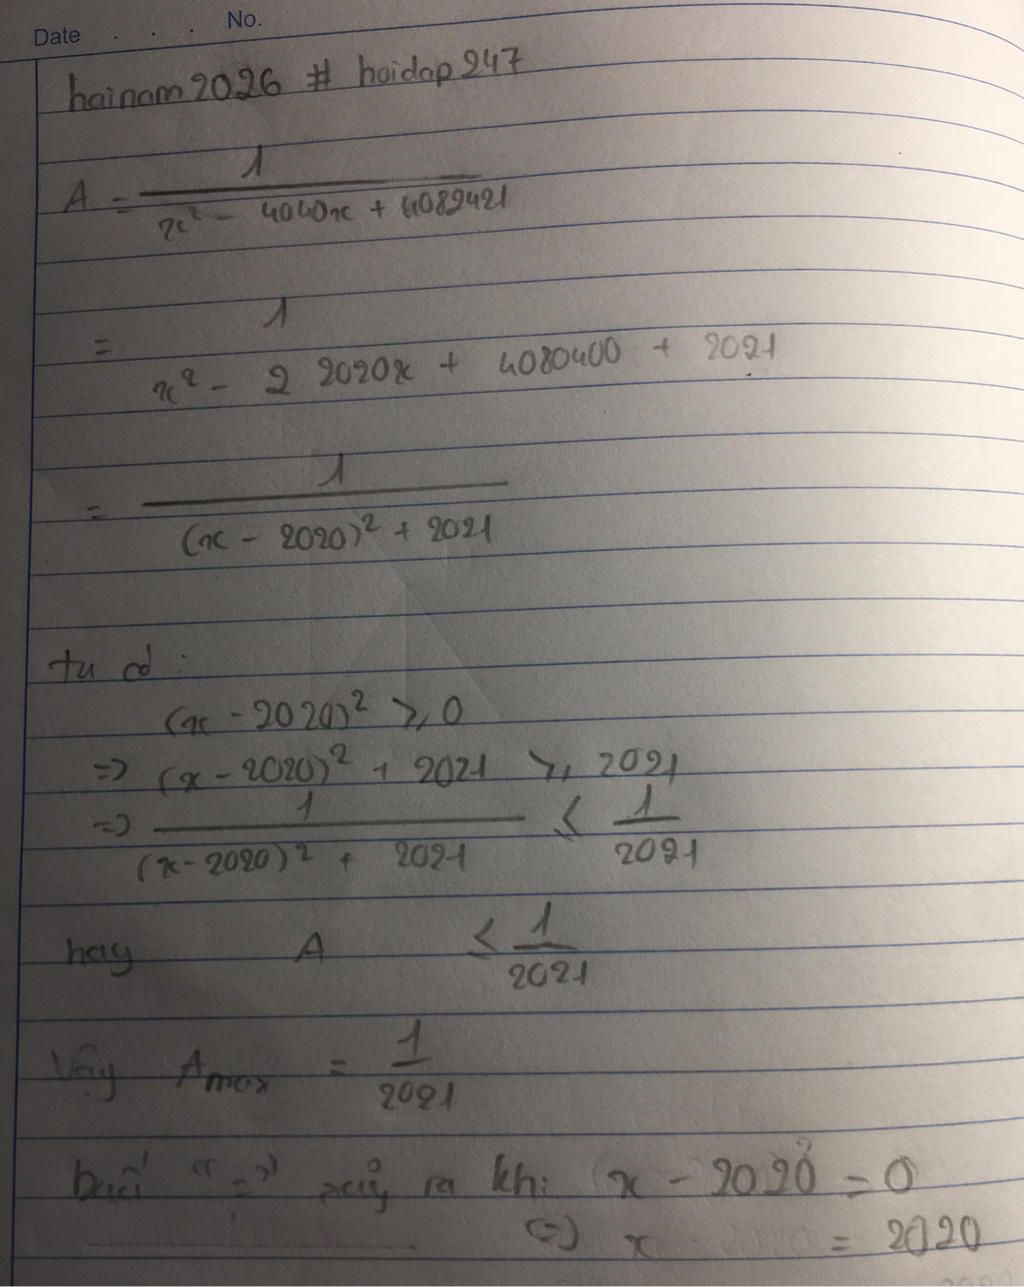 Date . . . No.
hainam2026 # hoidap247
A = 1 / x² - 4040x + 4082421
= 1 / x² - 2 2020x + 4080400 + 2021
= 1 / (x - 2020)² + 2021
ta có :
(x - 2020)² ⩾ 0
=> (x - 2020)² + 2021 ⩾ 2021
=> 1 / (x - 2020)² + 2021 ⩽ 1 / 2021
hay A ⩽ 1 / 2021
Vậy Amax = 1 / 2021
"=" xảy ra khi x - 2020 = 0
(=) x = 2020